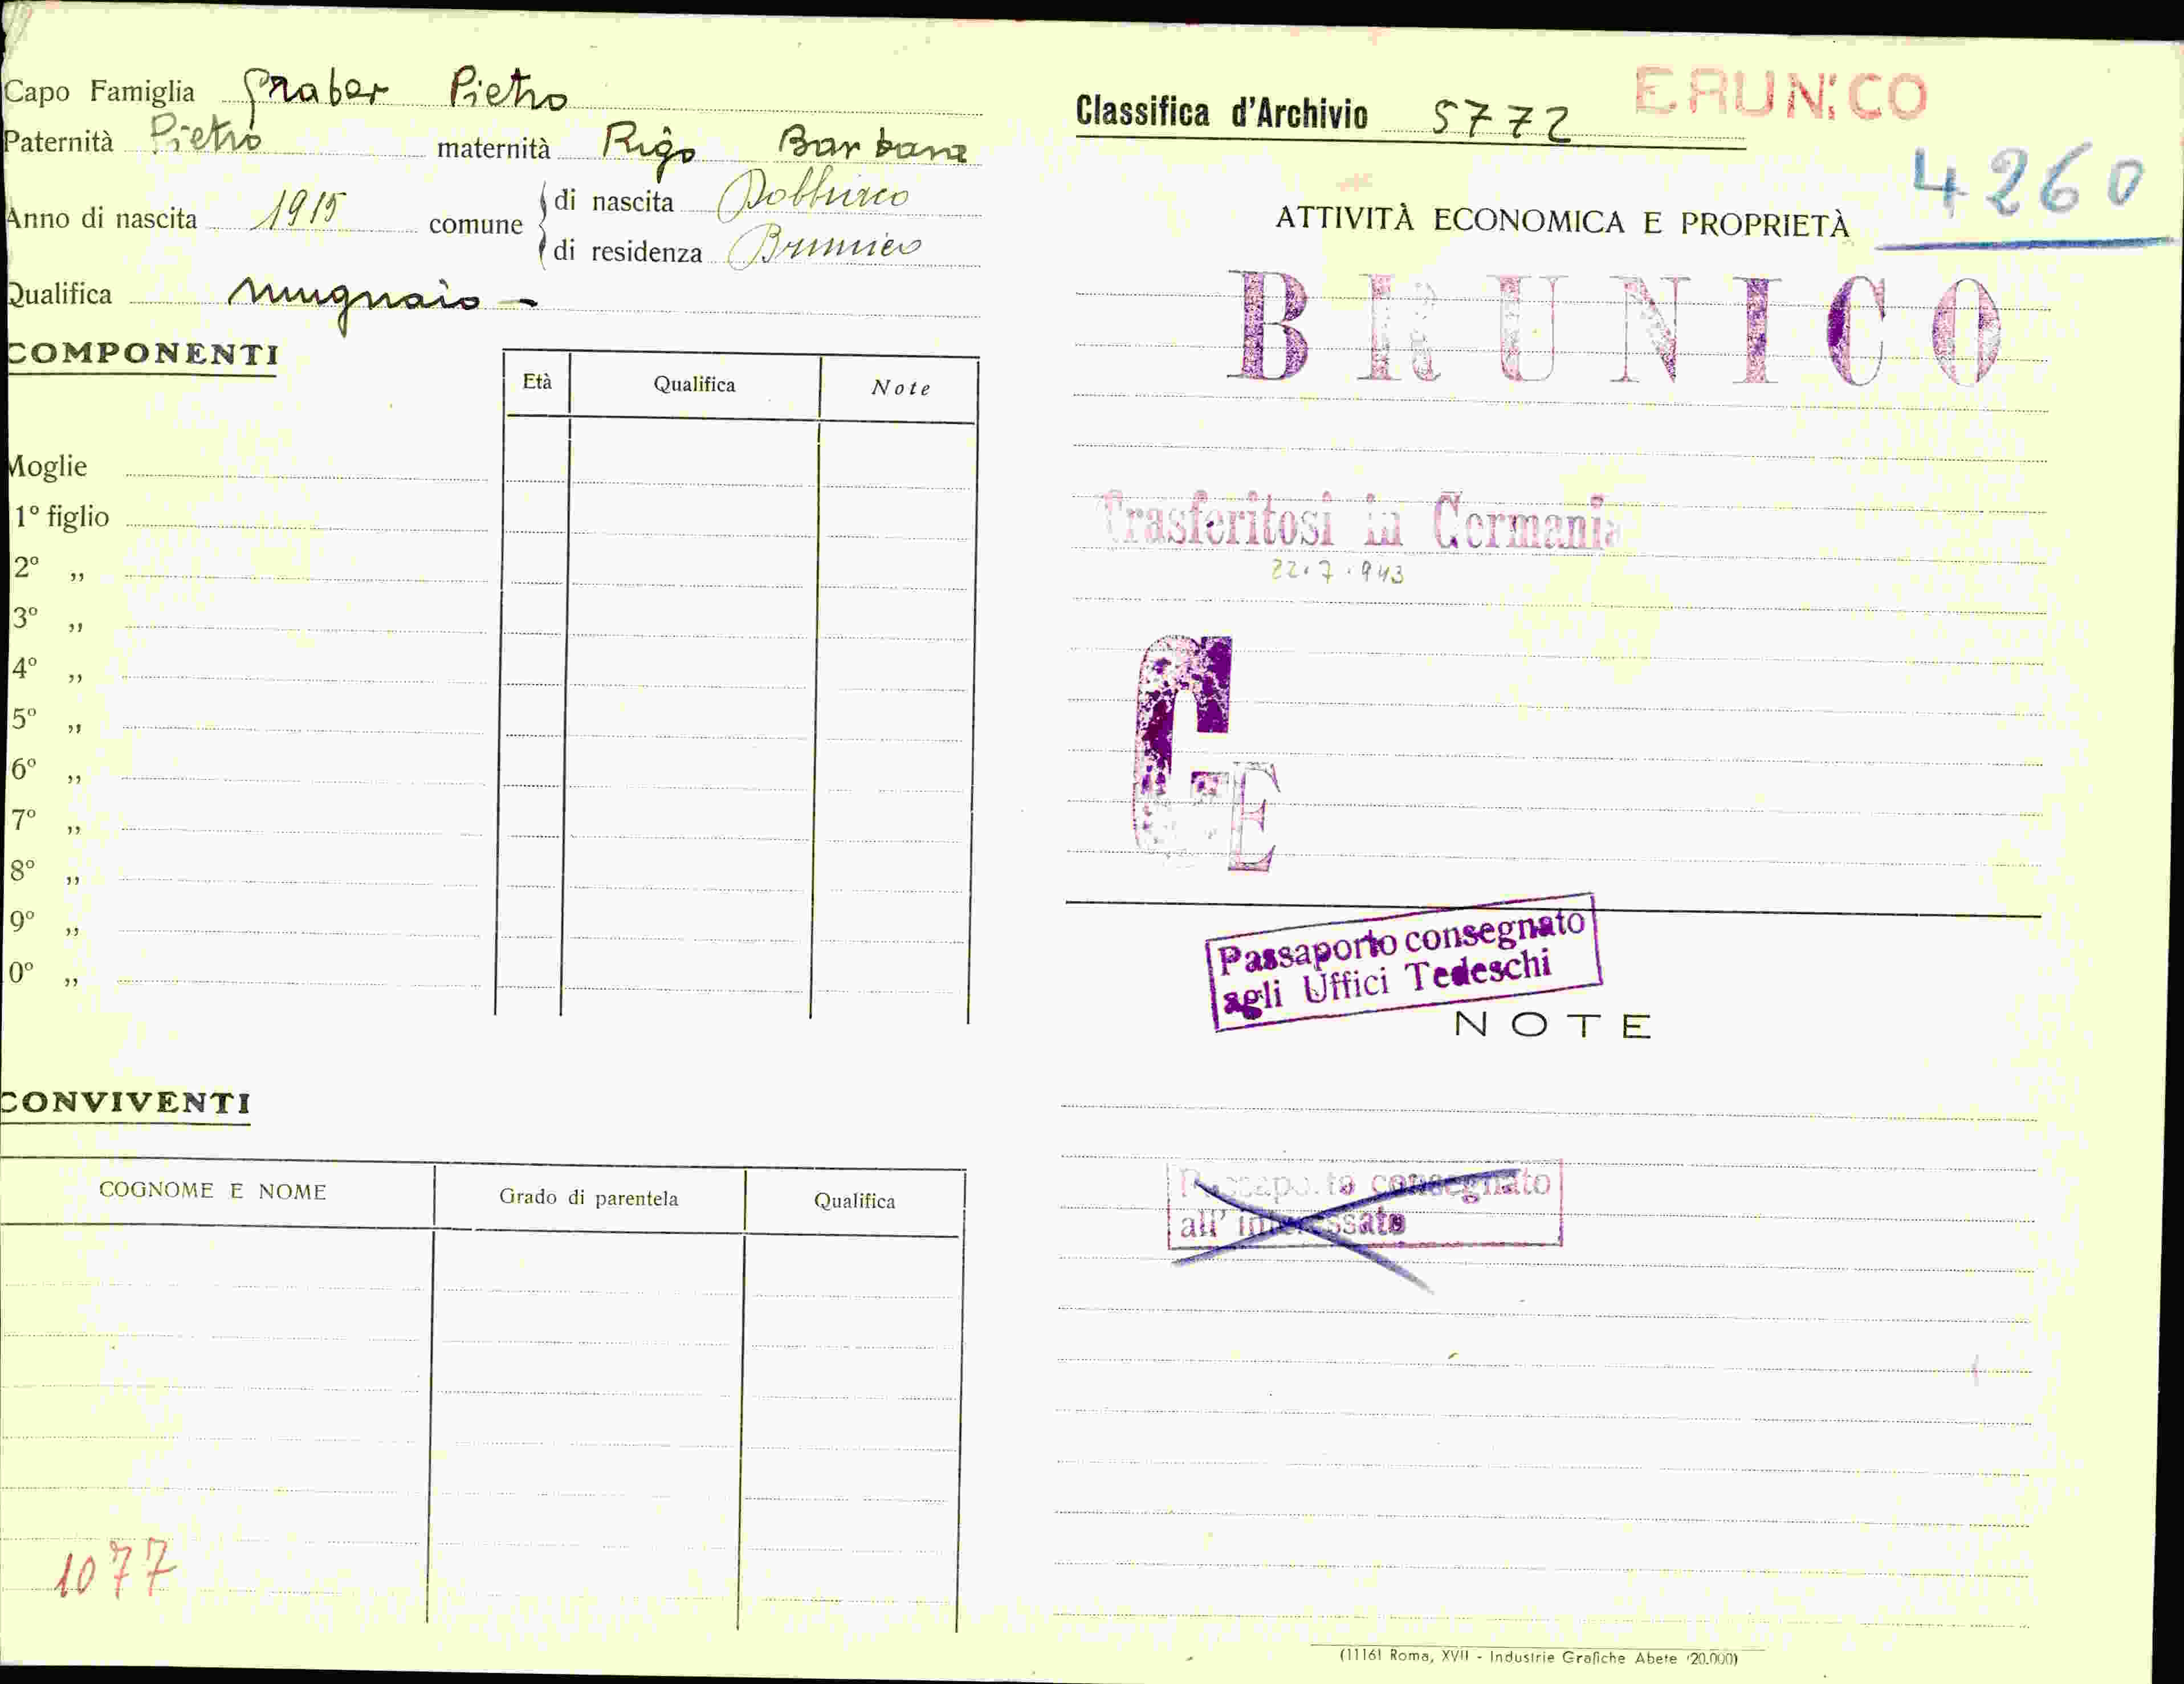 Capo Famiglia Graber Pietro
Paternità Pietro maternità Rigo Barbara
Anno di nascita 1915 comune di nascita Dobbiaco
di residenza Brunico
Qualifica Mugnaio -
COMPONENTI
Età Qualifica Note
Moglie
1º figlio
2º ,,
3º ,,
4º ,,
5º ,,
6º ,,
7º ,,
8º ,,
9º ,,
0º ,,
CONVIVENTI
COGNOME E NOME Grado di parentela Qualifica
1077
Classifica d'Archivio 5772 BRUNICO
4260
ATTIVITÀ ECONOMICA E PROPRIETÀ
BRUNICO
Trasferitosi in Germania
22.7.943
G
E
Passaporto consegnato
agli Uffici Tedeschi
NOTE
Passaporto consegnato
all' interessato
(11161 Roma, XVII - Industrie Grafiche Abete 20.000)